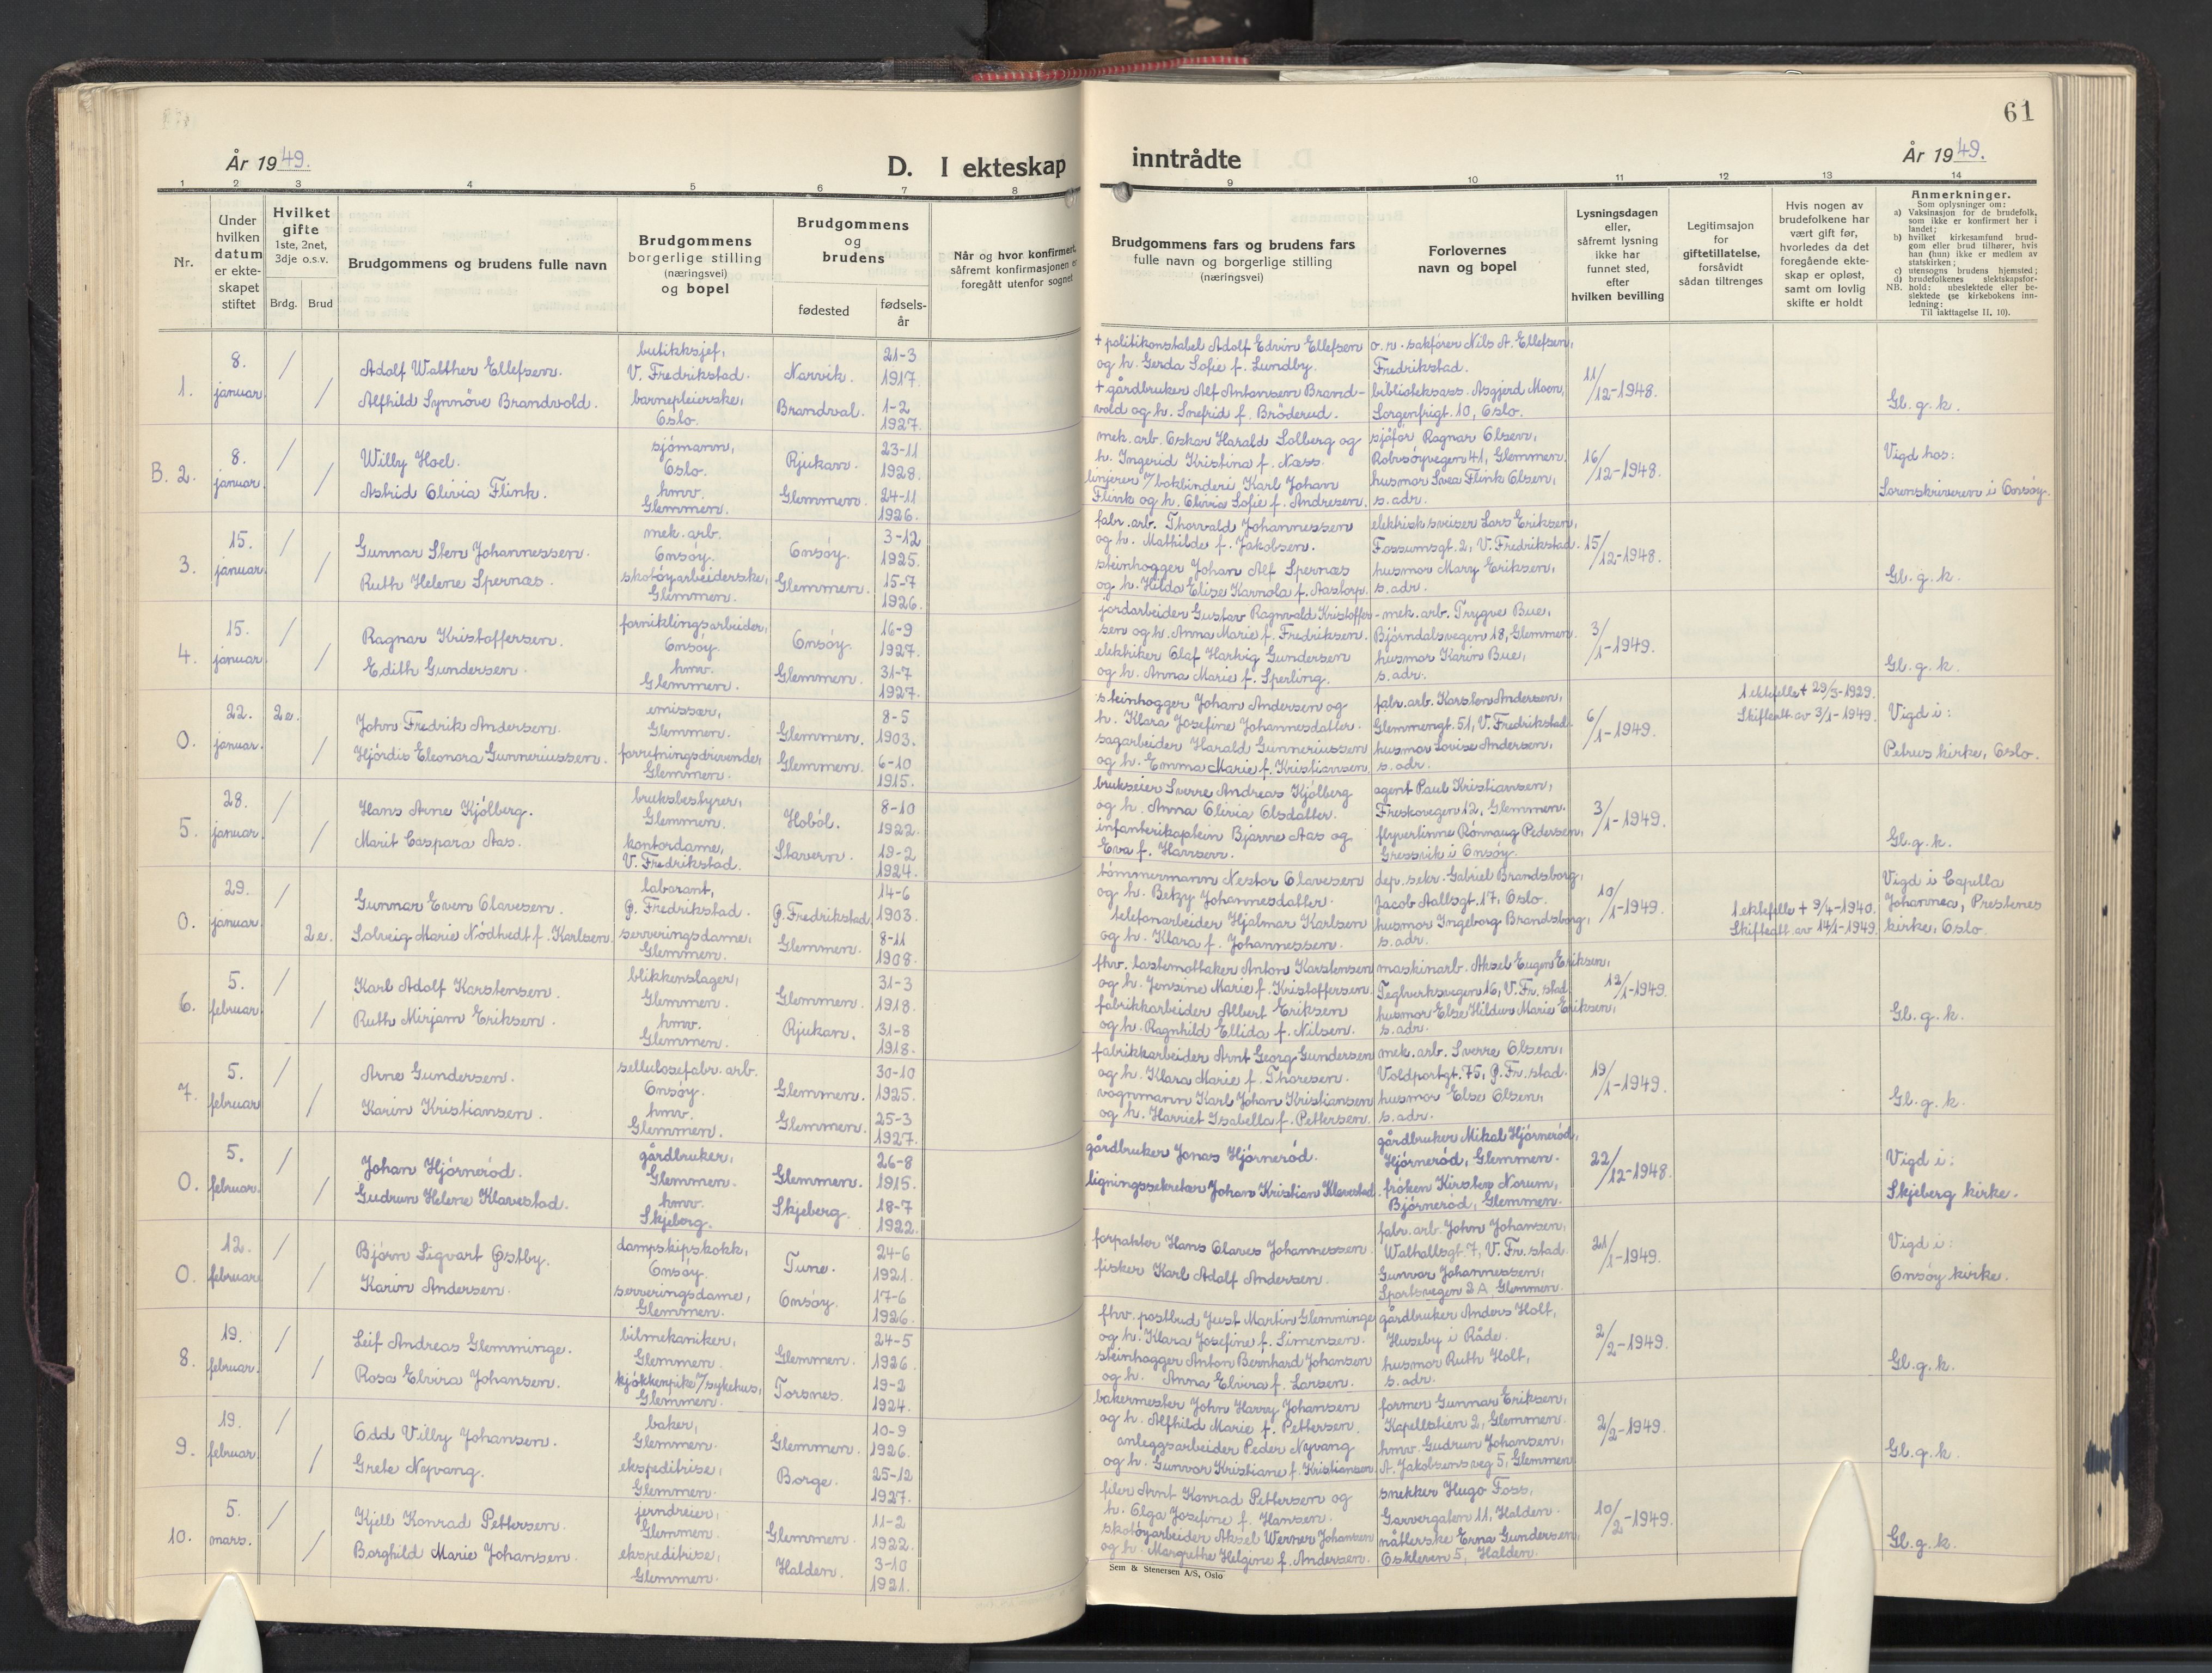 61
År 1949.
D. I ekteskap inntrådte
År 1949.
1 2 3 4 5 6 7 8 9 10 11 12 13 14
Nr.
Under hvilken datum er ekteskapet stiftet
Hvilket gifte
1ste, 2net, 3dje o.s.v.
Brdg. Brud
Brudgommens og brudens fulle navn
Brudgommens borgerlige stilling (næringsvei) og bopel
Brudgommens og brudens
fødested
fødselsår
Når og hvor konfirmert,
såfremt konfirmasjonen er
foregått utenfor sognet
Brudgommens fars og brudens fars
fulle navn og borgerlige stilling
(næringsvei)
Forlovernes
navn og bopel
Lysningsdagen
eller,
såfremt lysning
ikke har
funnet sted,
efter
hvilken bevilling
Legitimsajon
for
giftetillatelse,
forsåvidt
sådan tiltrenges
Hvis nogen av
brudefolkene har
vært gift før,
hvorledes da det
foregående ekte-
skap er opløst,
samt om lovlig
skifte er holdt
Anmerkninger.
Som oplysninger om:
a) Vaksinasjon for de brudefolk,
som ikke er konfirmert her i
landet;
b) hvilket kirkesamfund brud-
gom eller brud tilhører, hvis
han (hun) ikke er medlem av
statskirken;
c) utensogns brudens hjemsted;
d) brudefolkenes slektskapsfor-
hold: ubeslektede eller be-
slektede (se kirkebokens inn-
ledning:
NB. Til iakttagelse II, 10).
1. 8. januar. / /
Adolf Walther Ellefsen.
Alfhild Synnöve Brandvold.
butikksjef,
V. Fredrikstad.
barnepleierske,
Oslo.
Narvik.
Brandval.
21-3
1917.
1-2
1927.
+ politikonstabel Adolf Edvin Ellefsen
og h. Gerda Sofie f. Lundby.
+ gårdbruker Alf Antonsen Brand-
vold og h. Snefrid f. Bröderud.
o.r. sakförer Nils A. Ellefsen,
Fredrikstad.
biblioteksass. Asgjerd Moen,
Sorgenfrigt. 10, Oslo.
11/12-1948.
Gl. g. k.
B. 2. 8. januar. / /
Willy Hoel.
Astrid Olivia Flink.
sjömann,
Oslo.
hmv.
Glemmen.
Rjukan.
Glemmen.
23-11
1928.
24-11
1926.
mek. arb. Oskar Harald Solberg og
h. Ingerid Kristina f. Næss.
linjerer v/bokbinderi Karl Johan
Flink og h. Olivia Sofie f. Andresen.
sjåför Ragnar Olsen,
Rolvsöyvegen 41, Glemmen.
husmor Svea Flink Olsen,
s. adr.
16/12-1948.
Vigd hos:
Sorenskriveren i Onsöy.
3. 15. januar. / /
Gunnar Sten Johannessen.
Ruth Helene Spernæs.
mek. arb.
Onsöy.
skotöyarbeiderske,
Glemmen.
Onsöy.
Glemmen.
3-12
1925.
15-7
1926.
fabr. arb. Thorvald Johannessen
og h. Mathilde f. Jakobsen.
steinhogger Johan Alf Spernæs
og h. Hilda Elise Karnola f. Aastorp.
elektrisk sveiser Lars Eriksen,
Fossumsgt. 2, V. Fredrikstad.
husmor Mary Eriksen,
s. adr.
15/12-1948.
Gl. g. k.
4. 15. januar. / /
Ragnar Kristoffersen.
Edith Gundersen.
forniklingsarbeider,
Onsöy.
hmv.
Glemmen.
Onsöy.
Glemmen.
16-9
1927.
31-7
1927.
jordarbeider Gustav Ragnvald Kristoffer-
sen og h. Anna Marie f. Fredriksen.
elektriker Olaf Hartvig Gundersen
og h. Anna Marie f. Sperling.
mek. arb. Trygve Bue,
Bjørndalsvegen 18, Glemmen.
husmor Karin Bue,
s. adr.
3/1-1949.
Gl. g. k.
0. 22. januar. 2e. /
John Fredrik Andersen.
Hjördis Eleonora Gunneriussen.
emissær,
Glemmen.
forretningsdrivende,
Glemmen.
Glemmen.
Glemmen.
8-5
1903.
6-10
1915.
steinhogger Johan Andersen og
h. Klara Josefine Johannesdatter.
sagarbeider Harald Gunneriussen
og h. Emma Marie f. Kristiansen.
fabr. arb. Karsten Andersen,
Glemmengt. 51, V. Fredrikstad.
husmor Lovise Andersen,
s. adr.
6/1-1949.
1. ektefelle + 29/3-1929.
Skifteatt. av 3/1-1949.
Vigd i:
Petrus kirke, Oslo.
5. 28. januar. / /
Hans Arne Kjölberg.
Marit Caspara Aas.
bruksbestyrer,
Glemmen.
kontordame,
V. Fredrikstad.
Hoböl.
Stavern.
8-10
1922.
19-2
1924.
brukseier Sverre Andreas Kjölberg
og h. Anna Olivia Olsdatter.
infanterikaptein Bjarne Aas og
Eva f. Hansen.
agent Paul Kristiansen,
Freskovegen 12, Glemmen.
flyverlinne Rönnaug Pedersen,
Gressvik i Onsöy.
3/1-1949.
Gl. g. k.
0. 29. januar. / 2e.
Gunnar Even Olavesen.
Solveig Marie Nödtvedt f. Karlsen.
laborant,
Ø. Fredrikstad.
serveringsdame,
Glemmen.
Ø. Fredrikstad
Glemmen.
14-6
1903.
8-11
1908.
tömmermann Nestor Olavesen
og h. Betzy Johannesdatter.
telefonarbeider Hjalmar Karlsen
og h. Klara f. Johannessen.
dep. sekr. Gabriel Brandsborg,
Jacob Aallsgt. 17, Oslo.
husmor Ingeborg Brandsborg,
s. adr.
10/1-1949.
1. ektefelle + 9/4-1940.
Skifteatt. av 14/1-1949.
Vigd i Capella
Johannea, Prestenes
kirke, Oslo.
6. 5. februar. / /
Karl Adolf Karstensen.
Ruth Mirjam Eriksen.
blikkenslager,
Glemmen.
hmv.
Glemmen.
Glemmen.
Rjukan.
31-3
1918.
31-8
1918.
fhv. lastemottaker Anton Karstensen
og h. Jensine Marie f. Kristoffersen.
fabrikkarbeider Albert Eriksen
og h. Ragnhild Ellida f. Nilsen.
maskinarb. Aksel Eugen Eriksen,
Teglverksvegen 16, V. Fr. stad.
husmor Else Hildur Marie Eriksen,
s. adr.
12/1-1949.
Gl. g. k.
7. 5. februar / /
Arne Gundersen.
Karin Kristiansen.
sellulosefabr. arb.
Onsöy.
hmv.
Glemmen.
Glemmen.
Glemmen.
30-10
1925.
25-3
1927.
fabrikkarbeider Arnt Georg Gundersen
og h. Klara Marie f. Thoresen.
vognmann Karl Johan Kristiansen
og h. Harriet Isabella f. Pettersen.
mek. arb. Sverre Olsen,
Voldportgt. 75, Ø. Fr. stad.
husmor Else Olsen,
s. adr.
19/1-1949.
Gl. g. k.
0. 5. februar. / /
Johan Hjörneröd.
Gudrun Helene Klavestad.
gårdbruker,
Glemmen.
hmv.
Skjeberg.
Glemmen.
Skjeberg.
26-8
1915.
18-7
1922.
gårdbruker Jonas Hjörneröd.
ligningssekretær Johan Kristian Klavestad.
gårdbruker Mikal Hjörneröd,
Hjörneröd, Glemmen.
fröken Kirsten Norum,
Bjørneröd, Glemmen.
22/12-1948.
Vigd i:
Skjeberg kirke.
0. 12. februar / /
Björn Sigvart Østby.
Karin Andersen.
dampskipskokk,
Onsöy.
serveringsdame,
Glemmen.
Tune.
Onsöy.
24-6
1921.
17-6
1926.
forpaktor Hans Olaves Johannessen.
fisker Karl Adolf Andersen.
fabr. arb. John Johansen,
Walhallsgt. 7, V. Fr. stad.
Gunvor Johannessen,
Sportsvegen 2 A, Glemmen.
21/1-1949.
Vigd i:
Onsöy kirke.
8. 19. februar. / /
Leif Andreas Glemminge.
Rosa Elvira Johansen.
bilmekaniker,
Glemmen.
kjökkenpike v/sykehus,
Glemmen.
Glemmen.
Torsnes.
24-5
1926.
19-2
1924.
fhv. postbud Just Martin Glemminge
og h. Klara Josefine f. Simensen.
steinhogger Anton Bernhard Johansen
og h. Anna Elvira f. Larsen.
gårdbruker Anders Holt,
Huseby i Råde.
husmor Ruth Holt,
s. adr.
2/2-1949.
Gl. g. k.
9. 19. februar. / /
Odd Villy Johansen.
Grete Nyvang.
baker,
Glemmen.
ekspeditrise,
Glemmen.
Glemmen.
Borge.
10-9
1926.
25-12
1927.
bakermester John Harry Johansen
og h. Alfhild Marie f. Pettersen.
anleggsarbeider Peder Nyvang
og h. Gunvor Kristiane f. Kristiansen.
former Gunnar Eriksen,
Kapellstien 2, Glemmen.
hmv. Gudrun Johansen,
A. Jakobsens veg 5, Glemmen
2/2-1949.
Gl. g. k.
10. 5. mars. / /
Kjell Konrad Pettersen.
Borghild Marie Johansen.
jerndreier,
Glemmen.
ekspeditrise,
Glemmen.
Glemmen.
Halden.
11-2
1922.
3-10
1921.
filer Arnt Konrad Pettersen og
h. Olga Josefine f. Hansen.
skotöyarbeider Aksel Werner Johansen
og h. Margrethe Helgine f. Andersen.
snekker Hugo Foss,
Garvergaten 11, Halden.
nåtlerske Erna Gundersen,
Oskleven 5, Halden.
10/2-1949.
Gl. g. k.
Sem & Stenersen A/S, Oslo